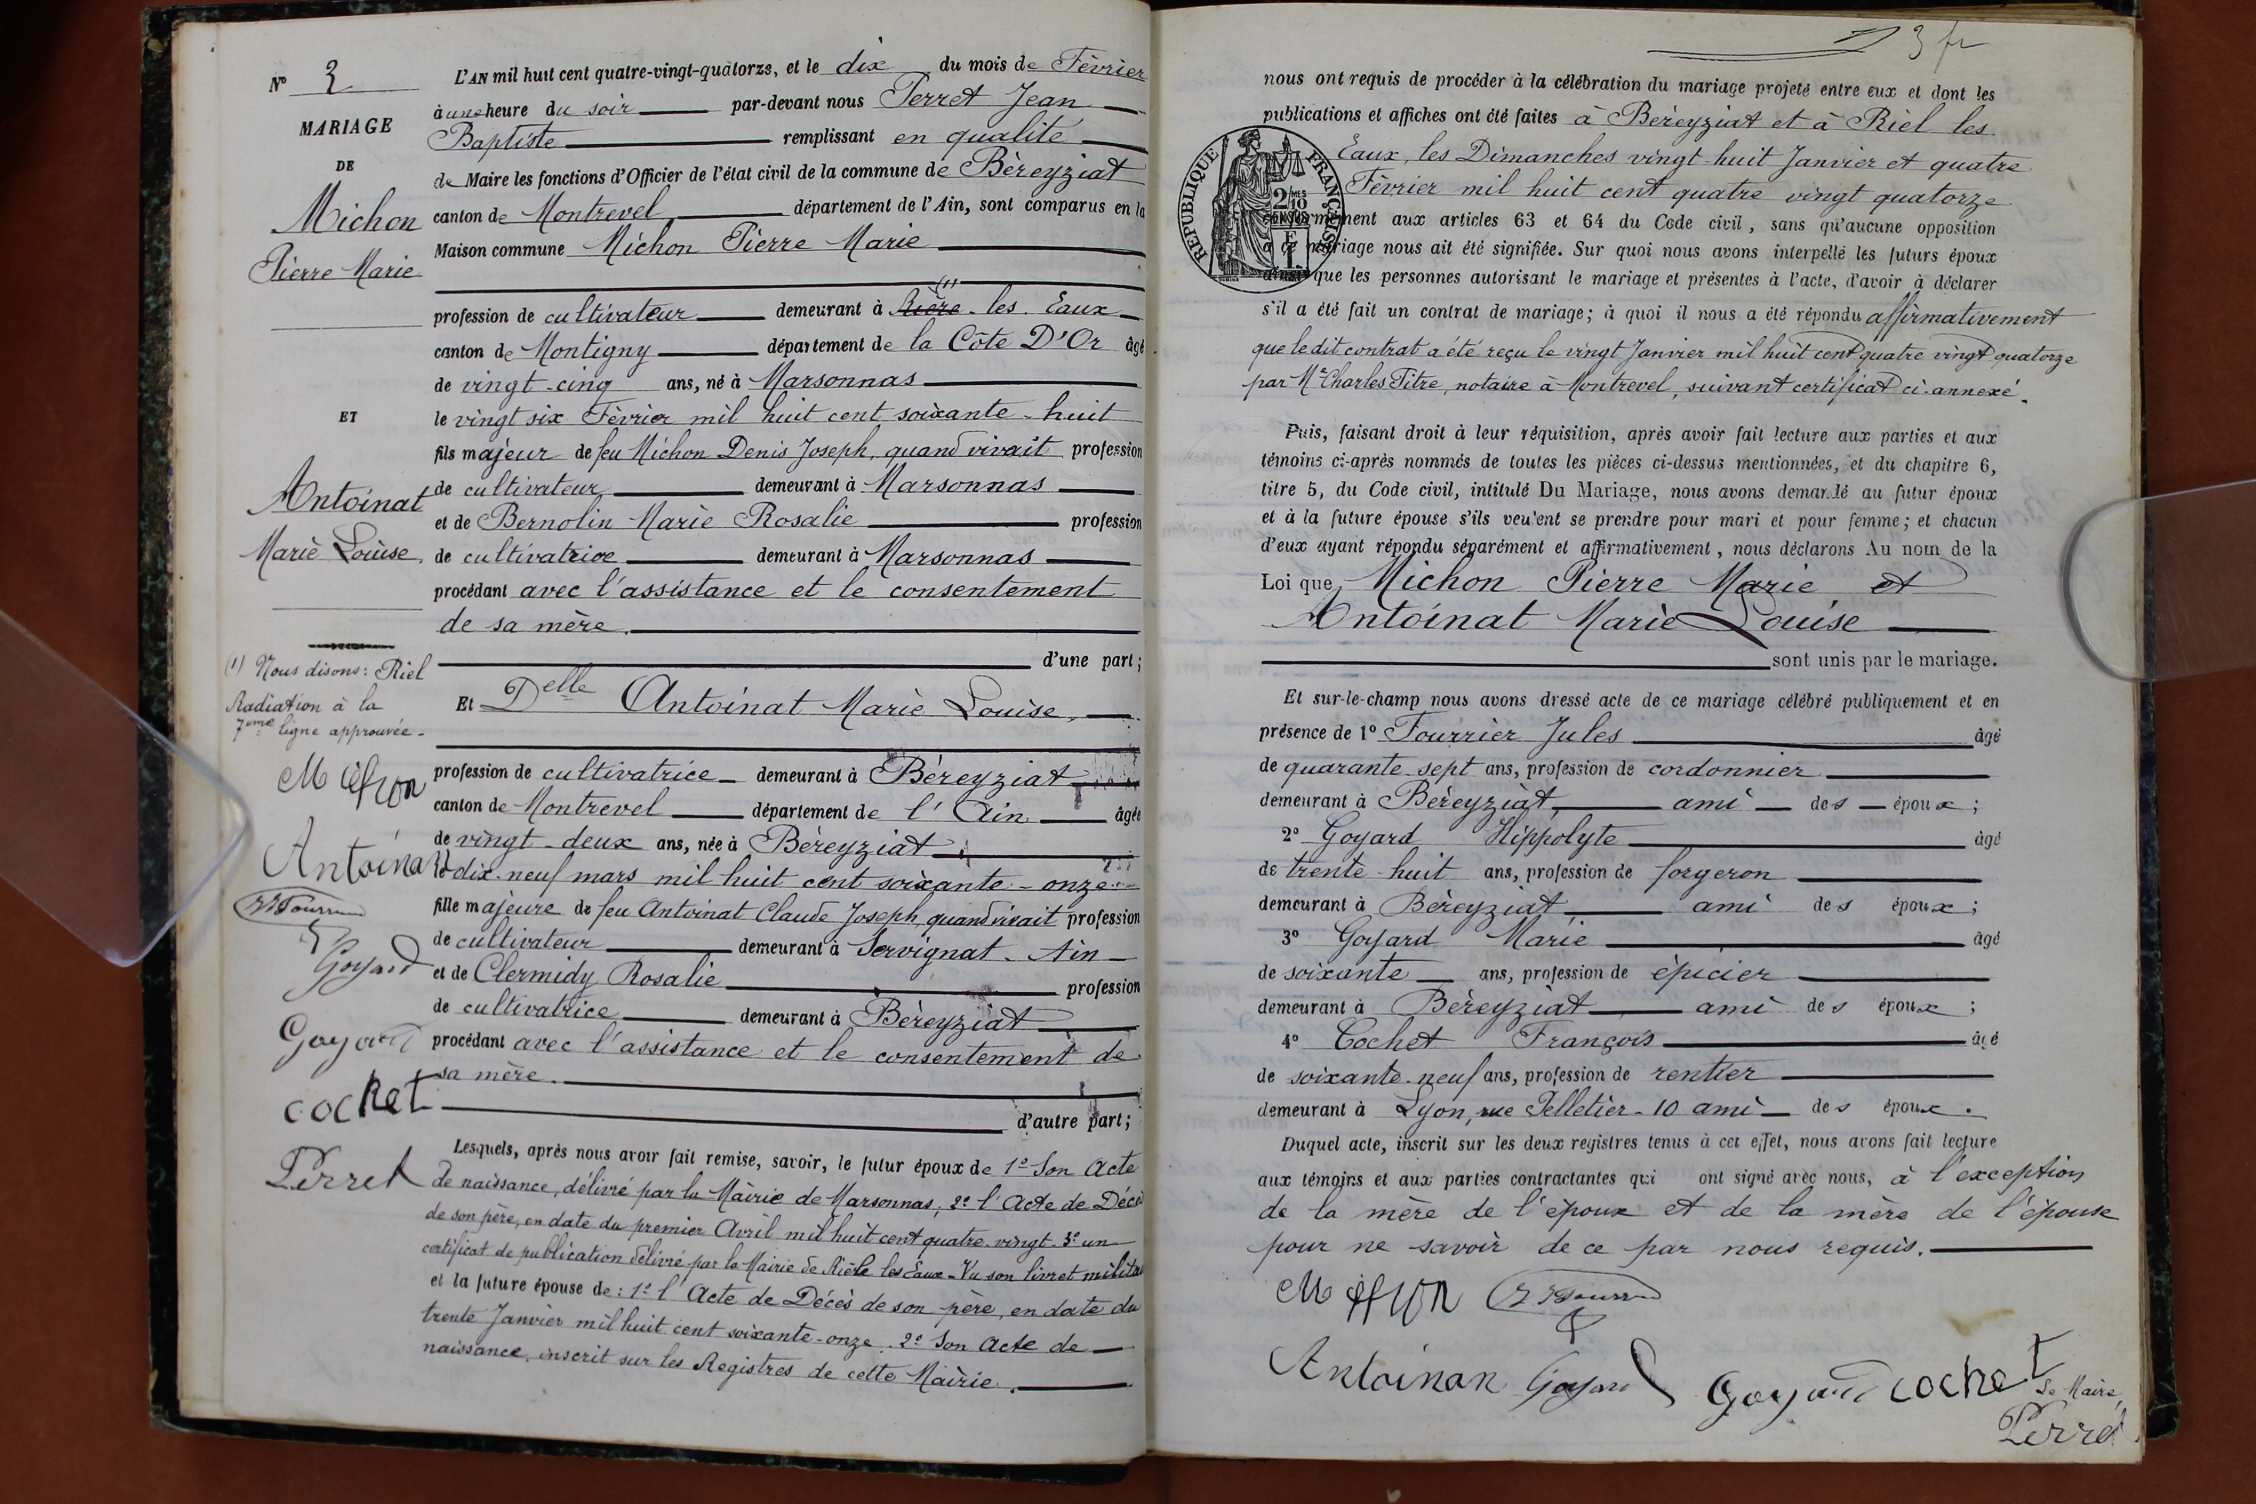 N° 3
MARIAGE
DE
Michon
Pierre Marie
ET
Antoinat
Marie Louise.
(1) Nous disons: Riel
Radiation à la
7eme ligne approuvée.
Michon
Antoinat
Goyard
Goyard
cochet
Perret
L'AN mil huit cent quatre-vingt-quatorze, et le dix du mois de Février
à une heure du soir par-devant nous Perret Jean
Baptiste remplissant en qualité
de Maire les fonctions d'Officier de l'état civil de la commune de Béreyziat
canton de Montrevel département de l'Ain, sont comparus en la
Maison commune Michon Pierre Marie
(1)
profession de cultivateur demeurant à Rière les Eaux
canton de Montigny département de la Côte D'Or âgé
de vingt-cinq ans, né à Marsonnas
le vingt six Février mil huit cent soixante-huit
fils majeur de feu Michon Denis Joseph, quand vivait profession
de cultivateur demeurant à Marsonnas
et de Bernolin Marie Rosalie profession
de cultivatrice demeurant à Marsonnas
procédant avec l'assistance et le consentement
de sa mère.
d'une part;
Et Delle Antoinat Marie Louise,
profession de cultivatrice demeurant à Béreyziat
canton de Montrevel département de l'Ain âgée
de vingt-deux ans, née à Béreyziat
le dix-neuf mars mil huit cent soixante-onze
fille majeure de feu Antoinat Claude Joseph, quand vivait profession
de cultivateur demeurant à Servignat - Ain
et de Clermidy Rosalie profession
de cultivatrice demeurant à Béreyziat
procédant avec l'assistance et le consentement de
sa mère.
d'autre part;
Lesquels, après nous avoir fait remise, savoir, le futur époux de 1° Son Acte
de naissance, délivré par la Mairie de Marsonnas, 2° l'Acte de Décès
de son père, en date du premier Avril mil huit cent quatre-vingt 3° un
certificat de publication délivré par la Mairie de Rièle les Eaux - Vu son livret militai
et la future épouse de: 1° l'Acte de Décès de son père, en date du
trente Janvier mil huit cent soixante-onze. 2° Son Acte de
naissance, inscrit sur les Registres de cette Mairie.
3 fr
nous ont requis de procéder à la célébration du mariage projeté entre eux et dont les
publications et affiches ont été faites à Béreyziat et à Riel les
Eaux, les Dimanches vingt huit Janvier et quatre
Février mil huit cent quatre vingt quatorze
REPUBLIQUE FRANÇAISE
2/10
EN SUS
F
1
conformément aux articles 63 et 64 du Code civil, sans qu'aucune opposition
à ce mariage nous ait été signifiée. Sur quoi nous avons interpellé les futurs époux
ainsi que les personnes autorisant le mariage et présentes à l'acte, d'avoir à déclarer
s'il a été fait un contrat de mariage; à quoi il nous a été répondu affirmativement
que le dit contrat a été reçu le vingt Janvier mil huit cent quatre vingt quatorze
par Me Charles Titre, notaire à Montrevel, suivant certificat ci-annexé.
Puis, faisant droit à leur réquisition, après avoir fait lecture aux parties et aux
témoins ci-après nommés de toutes les pièces ci-dessus mentionnées, et du chapitre 6,
titre 5, du Code civil, intitulé Du Mariage, nous avons demandé au futur époux
et à la future épouse s'ils veulent se prendre pour mari et pour femme; et chacun
d'eux ayant répondu séparément et affirmativement, nous déclarons Au nom de la
Loi que Michon Pierre Marie et
Antoinat Marie Louise
sont unis par le mariage.
Et sur-le-champ nous avons dressé acte de ce mariage célébré publiquement et en
présence de 1° Fourrier Jules âgé
de quarante-sept ans, profession de cordonnier
demeurant à Béreyziat, ami des époux;
2° Goyard Hippolyte âgé
de trente-huit ans, profession de forgeron
demeurant à Béreyziat, ami des époux;
3° Goyard Marie âgé
de soixante ans, profession de épicier
demeurant à Béreyziat ami des époux;
4° Cochet François âgé
de soixante-neuf ans, profession de rentier
demeurant à Lyon, rue Pelletier-10 ami des époux.
Duquel acte, inscrit sur les deux registres tenus à cet effet, nous avons fait lecture
aux témoins et aux parties contractantes qui ont signé avec nous, à l'exception
de la mère de l'époux et de la mère de l'épouse
pour ne savoir de ce par nous requis.
Michon
Antoinat Goyard Goyard cochet
Le Maire,
Perret